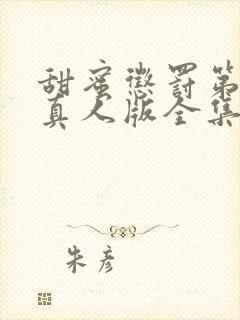 甜蜜惩罚第
真人版全集
朱彦